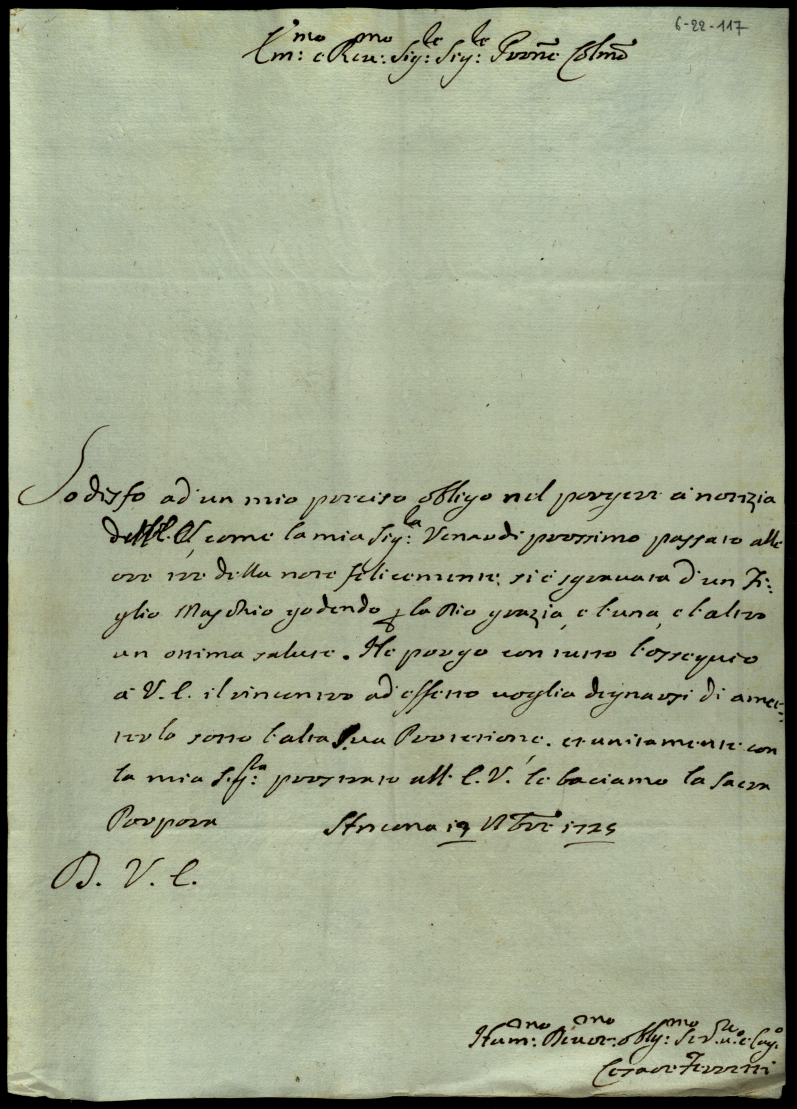 6-22-117
Em:mo e Rev:mo Sig:le Sig:le Prone Colmo
Sodisfo ad un mio preciso obligo nel porgere à notizia
dell'E. V. come la mia Sig:la Venardi prossimo passato alle
ore tre della note felicemente si è sgravata d'un Fi:
glio Maschio godendo p la Dio grazia, e l'una, e l'altro
un ottima salute. Ne porgo con tutto l'ossequio
à V. E. il rincontro ad effetto voglia degnarsi di amet:
terlo sotto l'alta sua Protetione. et unitamente con
la mia Sig:la prostrato all' E. V. le baciamo la Sacra
Porpora Ancona 19 Xbre 1725
D. V. E.
Hum:mo Devot:mo oblig:mo Serv:re v:o e Cog:o
Cesare Ferretti